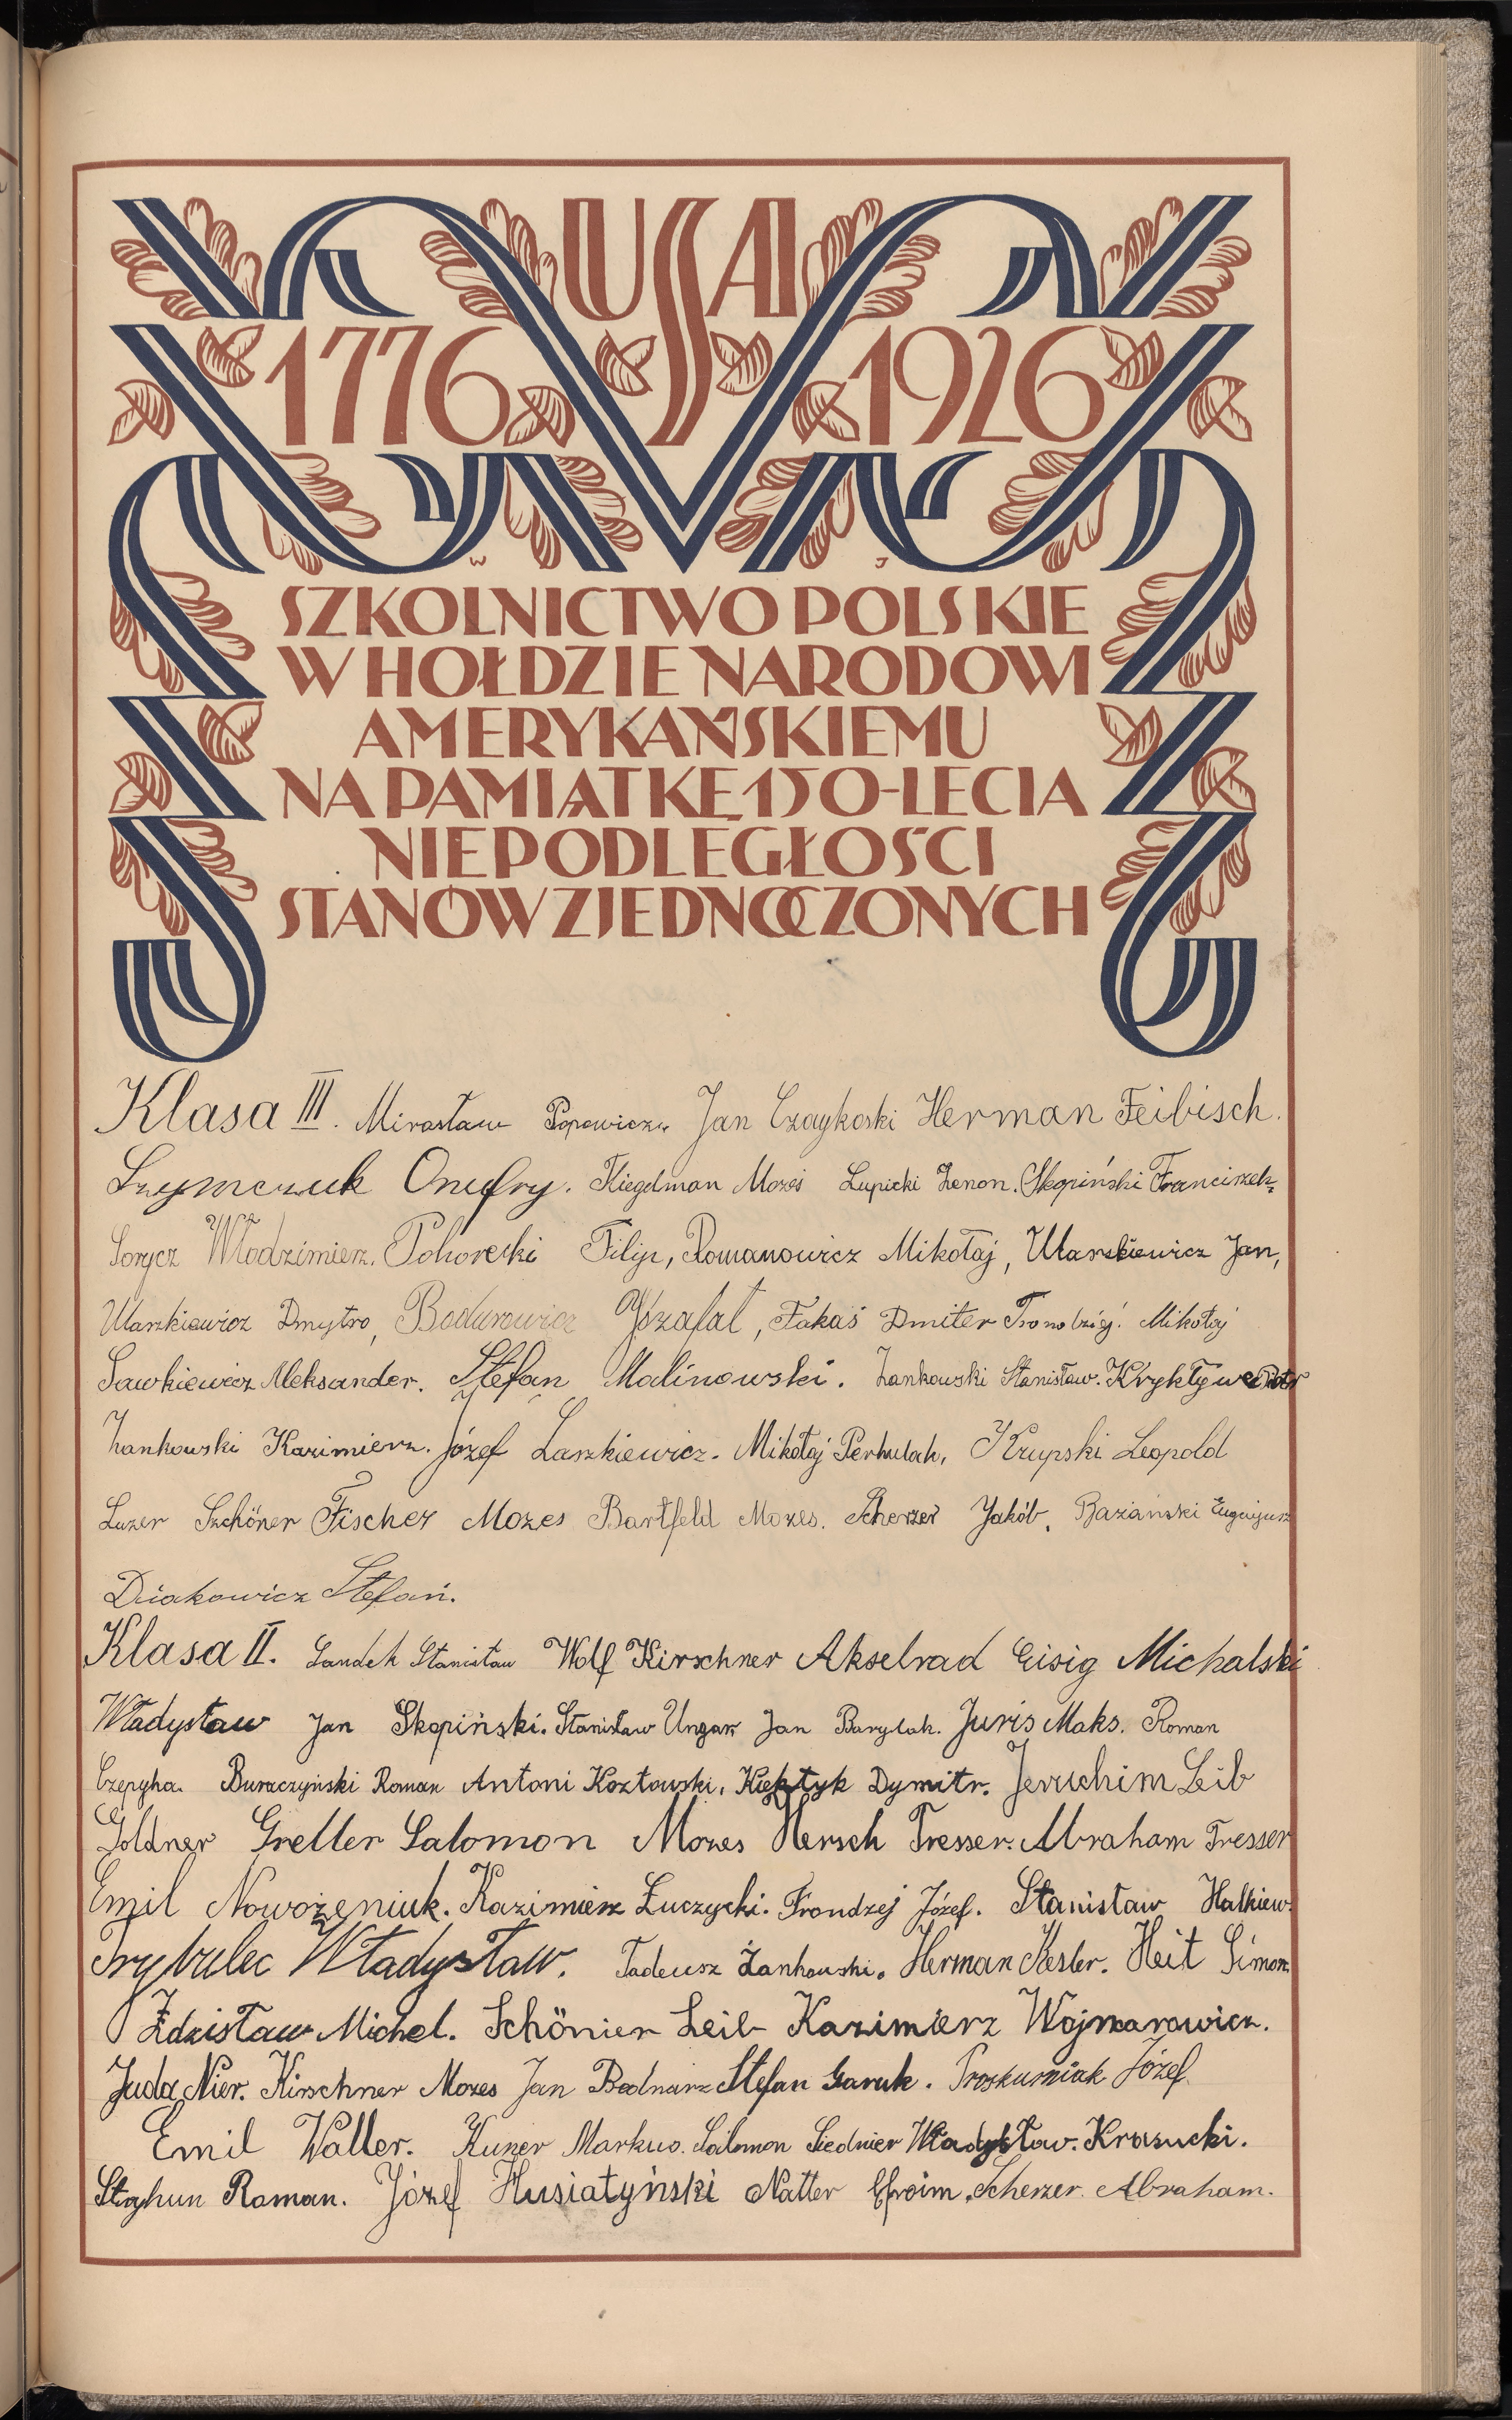 USA
1776 1926
W J
SZKOLNICTWO POLSKIE
W HOŁDZIE NARODOWI
AMERYKAŃSKIEMU
NA PAMIĄTKĘ 150-LECIA
NIEPODLEGŁOŚCI
STANÓW ZJEDNOCZONYCH
Klasa III. Mirosław Popowicz. Jan Czaykoski Herman Feibisch.
Szymczuk Onufry. Fliegelman Mozes Łupicki Zenon. Skopiński Franciszek.
Sorycz Włodzimierz. Pohorecki Filip, Romanowicz Mikołaj, Ułaszkiewicz Jan,
Ułaszkiewicz Dmytro, Bodurowicz Józafat, Fakas Dmiter Mikołaj
Sawkiewicz Aleksander. Stefan Malinowski. Żankowski Stanisław. Kryktywe Piotr
Żankowski Kazimierz. Józef Laszkiewicz. Mikołaj Perhulak, Krupski Leopold
Luzer Szchöner Fischer Mozes Bartfeld Mozes. Scherzer Jakób. Bazański Eugenjusz
Diakowicz Stefan.
Klasa II. Sandek Stanisław Wolf Kirschner Akselrad Eisig Michalski
Władysław Jan Skopiński. Stanisław Ungar Jan Barylak. Juris Maks. Roman
Czepyha. Buraczyński Roman Antoni Kozłowski. Dymitr. Jeruchim Leib
Goldner Greller Salomon Mozes Hersch Tresser. Abraham Tresser
Emil Nowożeniuk. Kazimierz Łuczycki. Frondzej Józef. Stanisław Halkiew.
Trybulec Władysław. Tadeusz Żankowski. Herman Kesler. Heit Simon
Zdzisław Michel. Schönier Leib Kazimierz Wojnarowicz.
Juda Nier. Kirschner Mozes Jan Bednarz Stefan Garuk. Proskurniak Józef
Emil Waller. Kuzer Markus. Salomon Siednier Władysław. Krasucki.
Stryhun Roman. Józef Husiatyński Natter Efroim. Scherzer Abraham.